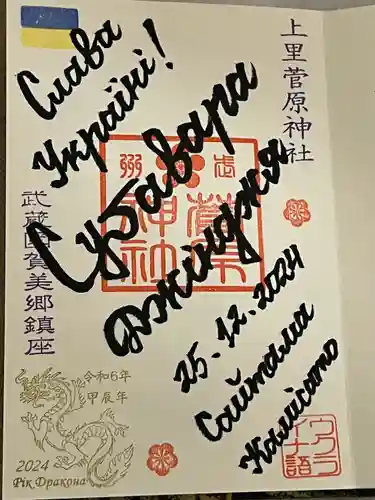 上里菅原神社
Слава
Україні!
Сугавара
джінджя
25.12.2024
Сайтама
Камісато
武蔵國賀美郷鎮座
令和6年
甲辰年
2024
Рік Дракона
ウクライナ語